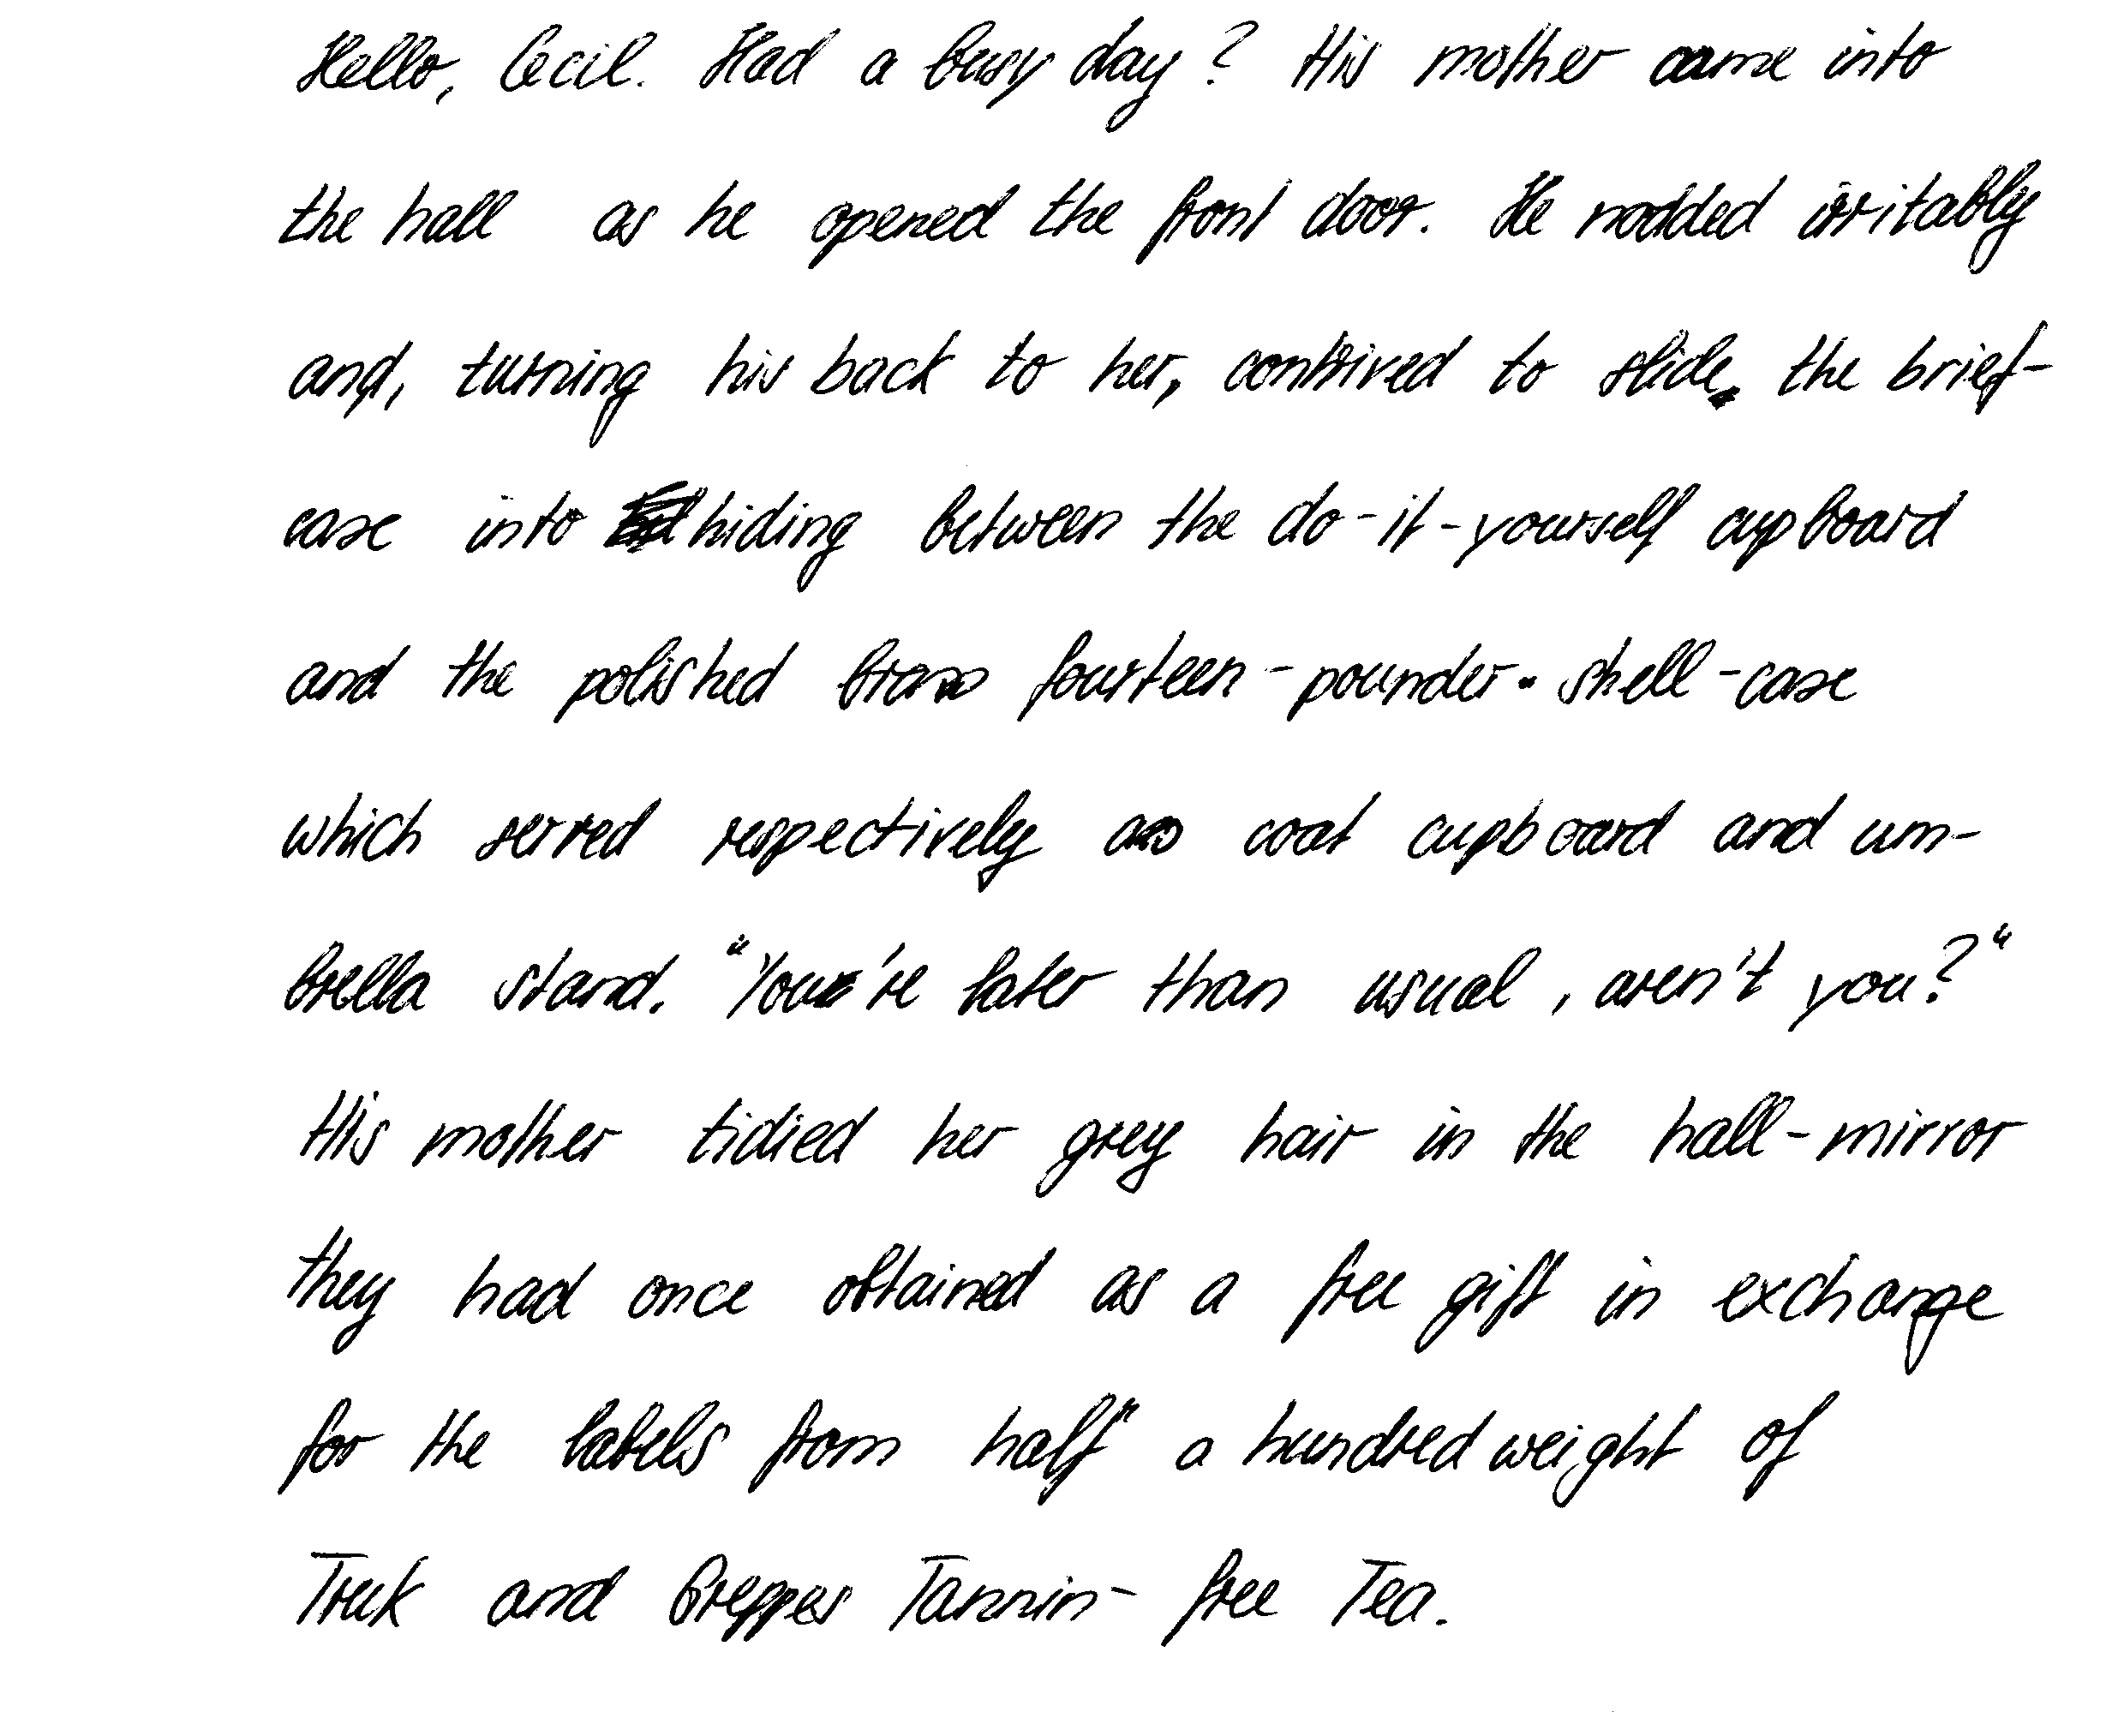 Hello, Cecil. Had a busy day? His mother came into
the hall as he opened the front door. He nodded irritably
and, turning his back to her, contrived to slide the brief-
case into hiding between the do-it-yourself cupboard
and the polished brass fourteen-pounder shell-case
which served respectively as coat cupboard and um-
brella stand. "You're later than usual, aren't you?"
His mother tidied her grey hair in the hall-mirror
they had once obtained as a free gift in exchange
for the labels from half a hundredweight of
Trek and Preppes Tannin-free Tea.